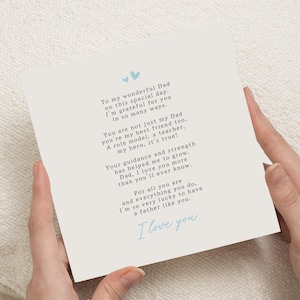 To my wonderful Dad
on this special day.
I'm grateful for you
in so many ways.
You are not just my Dad
you're my best friend too.
A role model, a teacher,
my hero, it's true!
Your guidance and strength
has helped me to grow.
Dad, I love you more
than you'll ever know.
For all you are
and everything you do,
I'm so very lucky to have
a father like you.
I love you